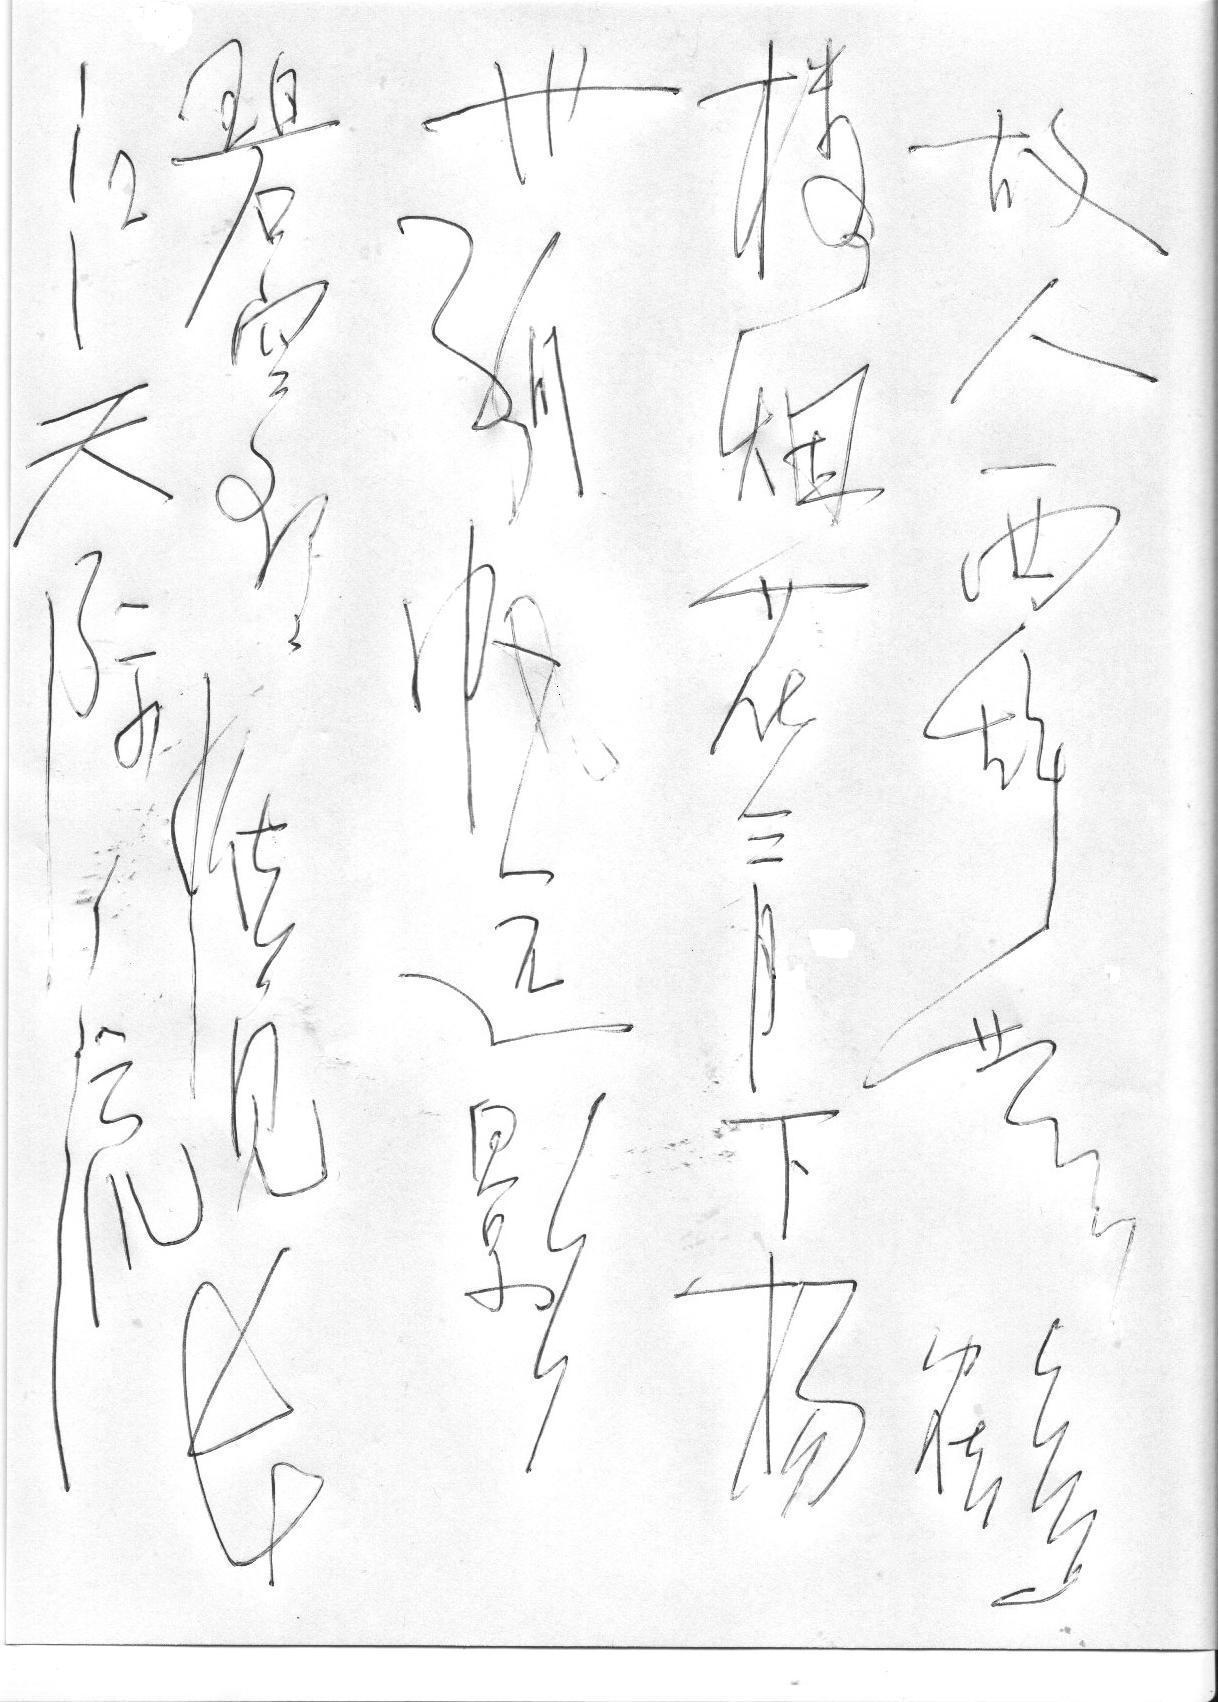 故人西辞黄鹤
楼烟花三月下扬
州孤帆远影
碧空尽惟见长
江天际流